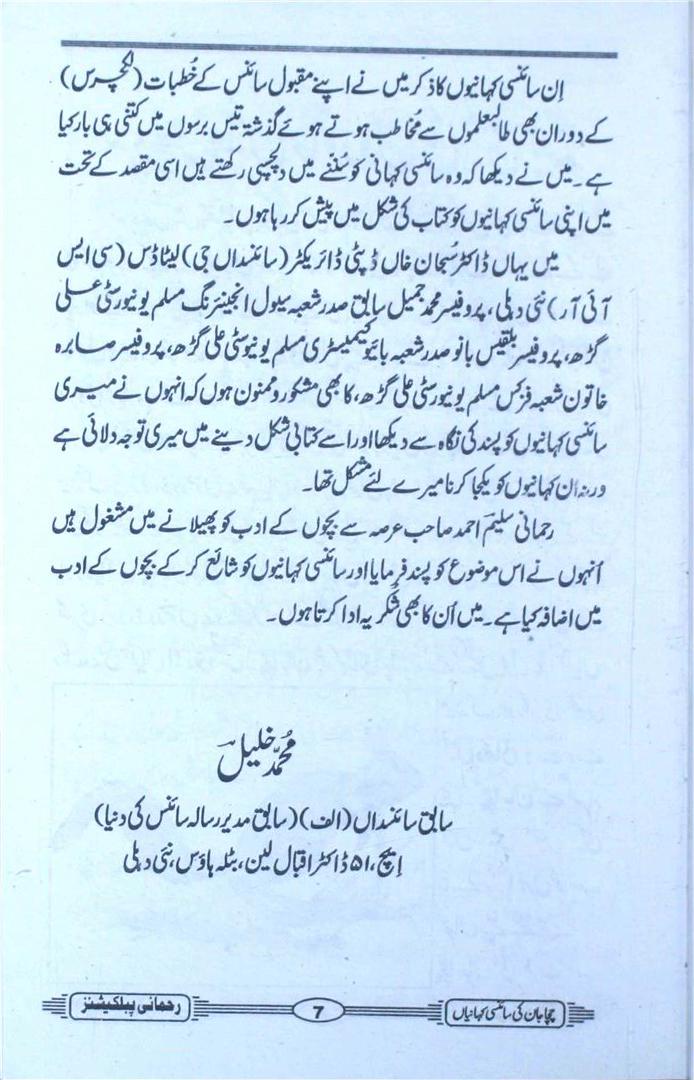 اِن سائنسی کہانیوں کا ذکر میں نے اپنے مقبول سائنس کے خُطبات (لکچرس)
کے دوران بھی طالبعلموں سے مُخاطب ہوتے ہوئے گذشتہ تیس برسوں میں کتنی ہی بار کیا
ہے۔ میں نے دیکھا کہ وہ سائنسی کہانی کو سُننے میں دلچسپی رکھتے ہیں اسی مقصد کے تحت
میں اپنی سائنسی کہانیوں کو کتاب کی شکل میں پیش کر رہا ہوں۔
میں یہاں ڈاکٹر سُبحان خاں ڈپٹی ڈائریکٹر (سائنسداں جی) نِسٹاڈس (سی ایس
آئی آر) نئی دہلی، پروفیسر محمد جمیل سابق صدر شعبہ سیول انجینئرنگ مسلم یونیورسٹی علی
گڑھ، پروفیسر بلقیس بانو صدر شعبہ بائیو کیمیسٹری مسلم یونیورسٹی علی گڑھ، پروفیسر صابرہ
خاتون شعبہ فزکس مسلم یونیورسٹی علی گڑھ، کا بھی مشکور و ممنون ہوں کہ انہوں نے میری
سائنسی کہانیوں کو پسند کی نگاہ سے دیکھا اور اسے کتابی شکل دینے میں میری توجہ دلائی ہے
ورنہ ان کہانیوں کو یکجا کرنا میرے لئے مشکل تھا۔
رحمانی سلیم احمد صاحب عرصہ سے بچوں کے ادب کو پھیلانے میں مشغول ہیں
اُنہوں نے اس موضوع کو پسند فرمایا اور سائنسی کہانیوں کو شائع کر کے بچوں کے ادب
میں اضافہ کیا ہے۔ میں اُن کا بھی شُکریہ ادا کرتا ہوں۔
محمد خلیل
سابق سائنسداں (الف) (سابق مدیر رسالہ سائنس کی دنیا)
ایچ، ۵۱ ڈاکٹر اقبال لین، بٹلہ ہاؤس، نئی دہلی
چچا جان کی سائنسی کہانیاں 7 رحمانی پبلکیشنز